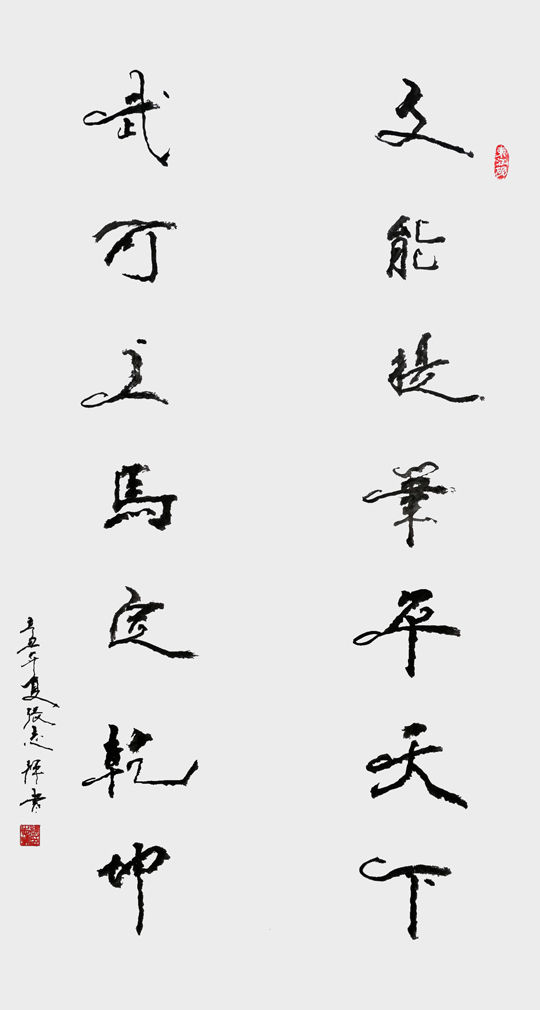 文能提筆平天下
武可立馬定乾坤
辛丑年夏張志書